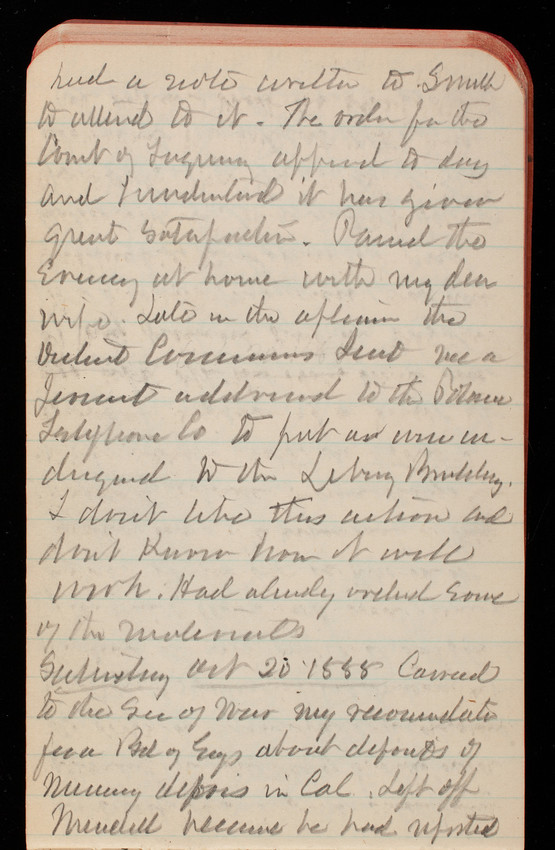 had a note written to Smith
to attend to it. The order for the
Court of Inquiry appeared to day
and I understand it has given
great satisfaction. Passed the
Evening at home with my dear
wife. Late in the afternoon the
District Commrs Sent me a
permit addressed to the
Telephone Co to put an wire un-
derground to the Library Building.
I don't like this action and
don't Know how it will
work. Had already ordered Some
of the materials
Saturday Oct 20 1888 Carried
to the Sec of War my recommendation
for a Bd of Engs about deposits of
Mining debris in Cal. Left off
Mendell because he had reported